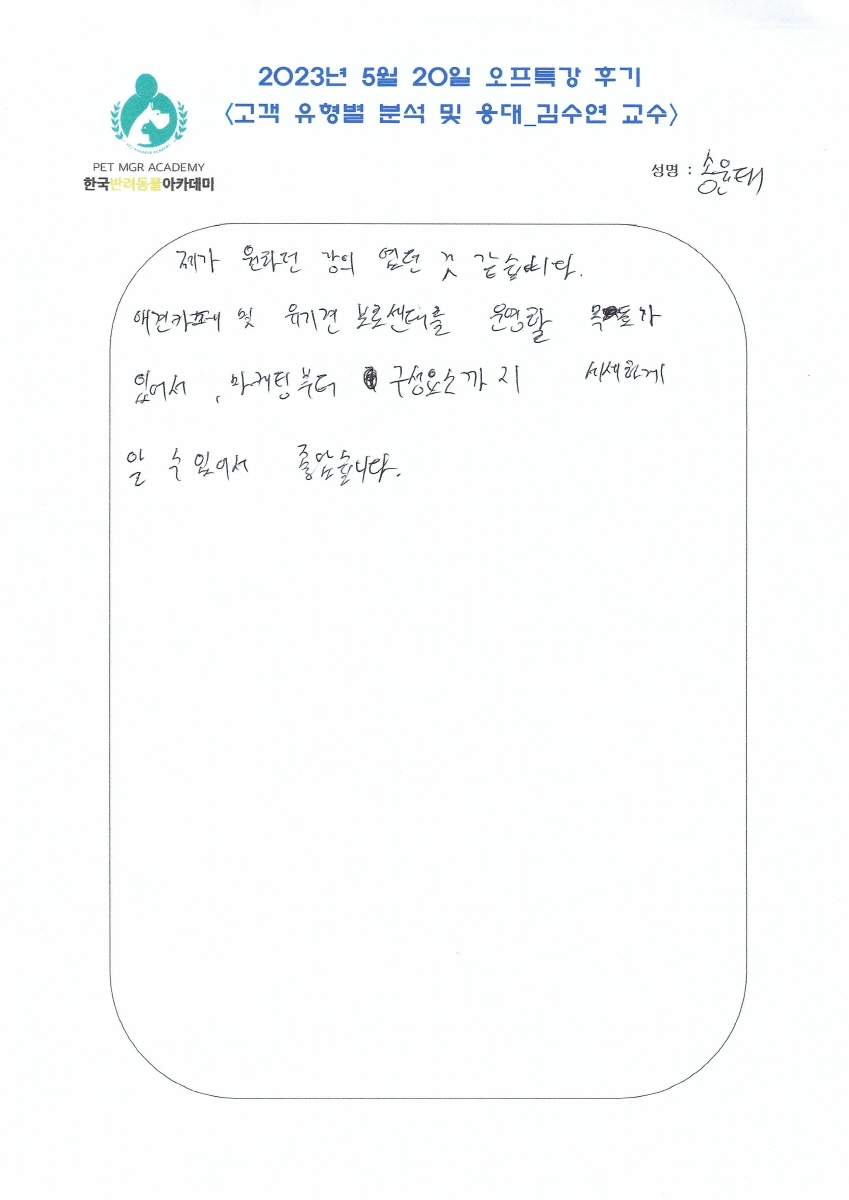 2023년 5월 20일 오프특강 후기
<고객 유형별 분석 및 응대_김수연 교수>
PET MGR ACADEMY
한국반려동물아카데미
성명 : 송윤태
제가 원하던 강의 였던 것 같습니다.
애견카페 및 유기견 보호센터를 운영할
있어서, 마케팅부터 구성요소까지 세세하게
알 수 있어서 좋았습니다.